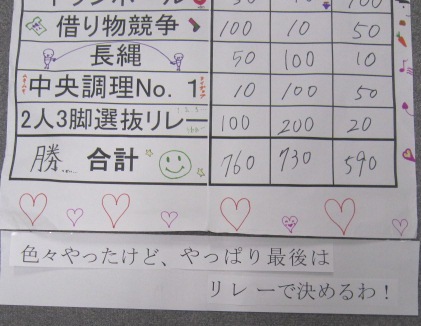 借り物競争 100 10 50
長縄 50 100 10
中央調理No. 1 10 100 50
2人3脚選抜リレー 100 200 20
勝 合計 760 730 590
色々やったけど、やっぱり最後は
リレーで決めるわ！